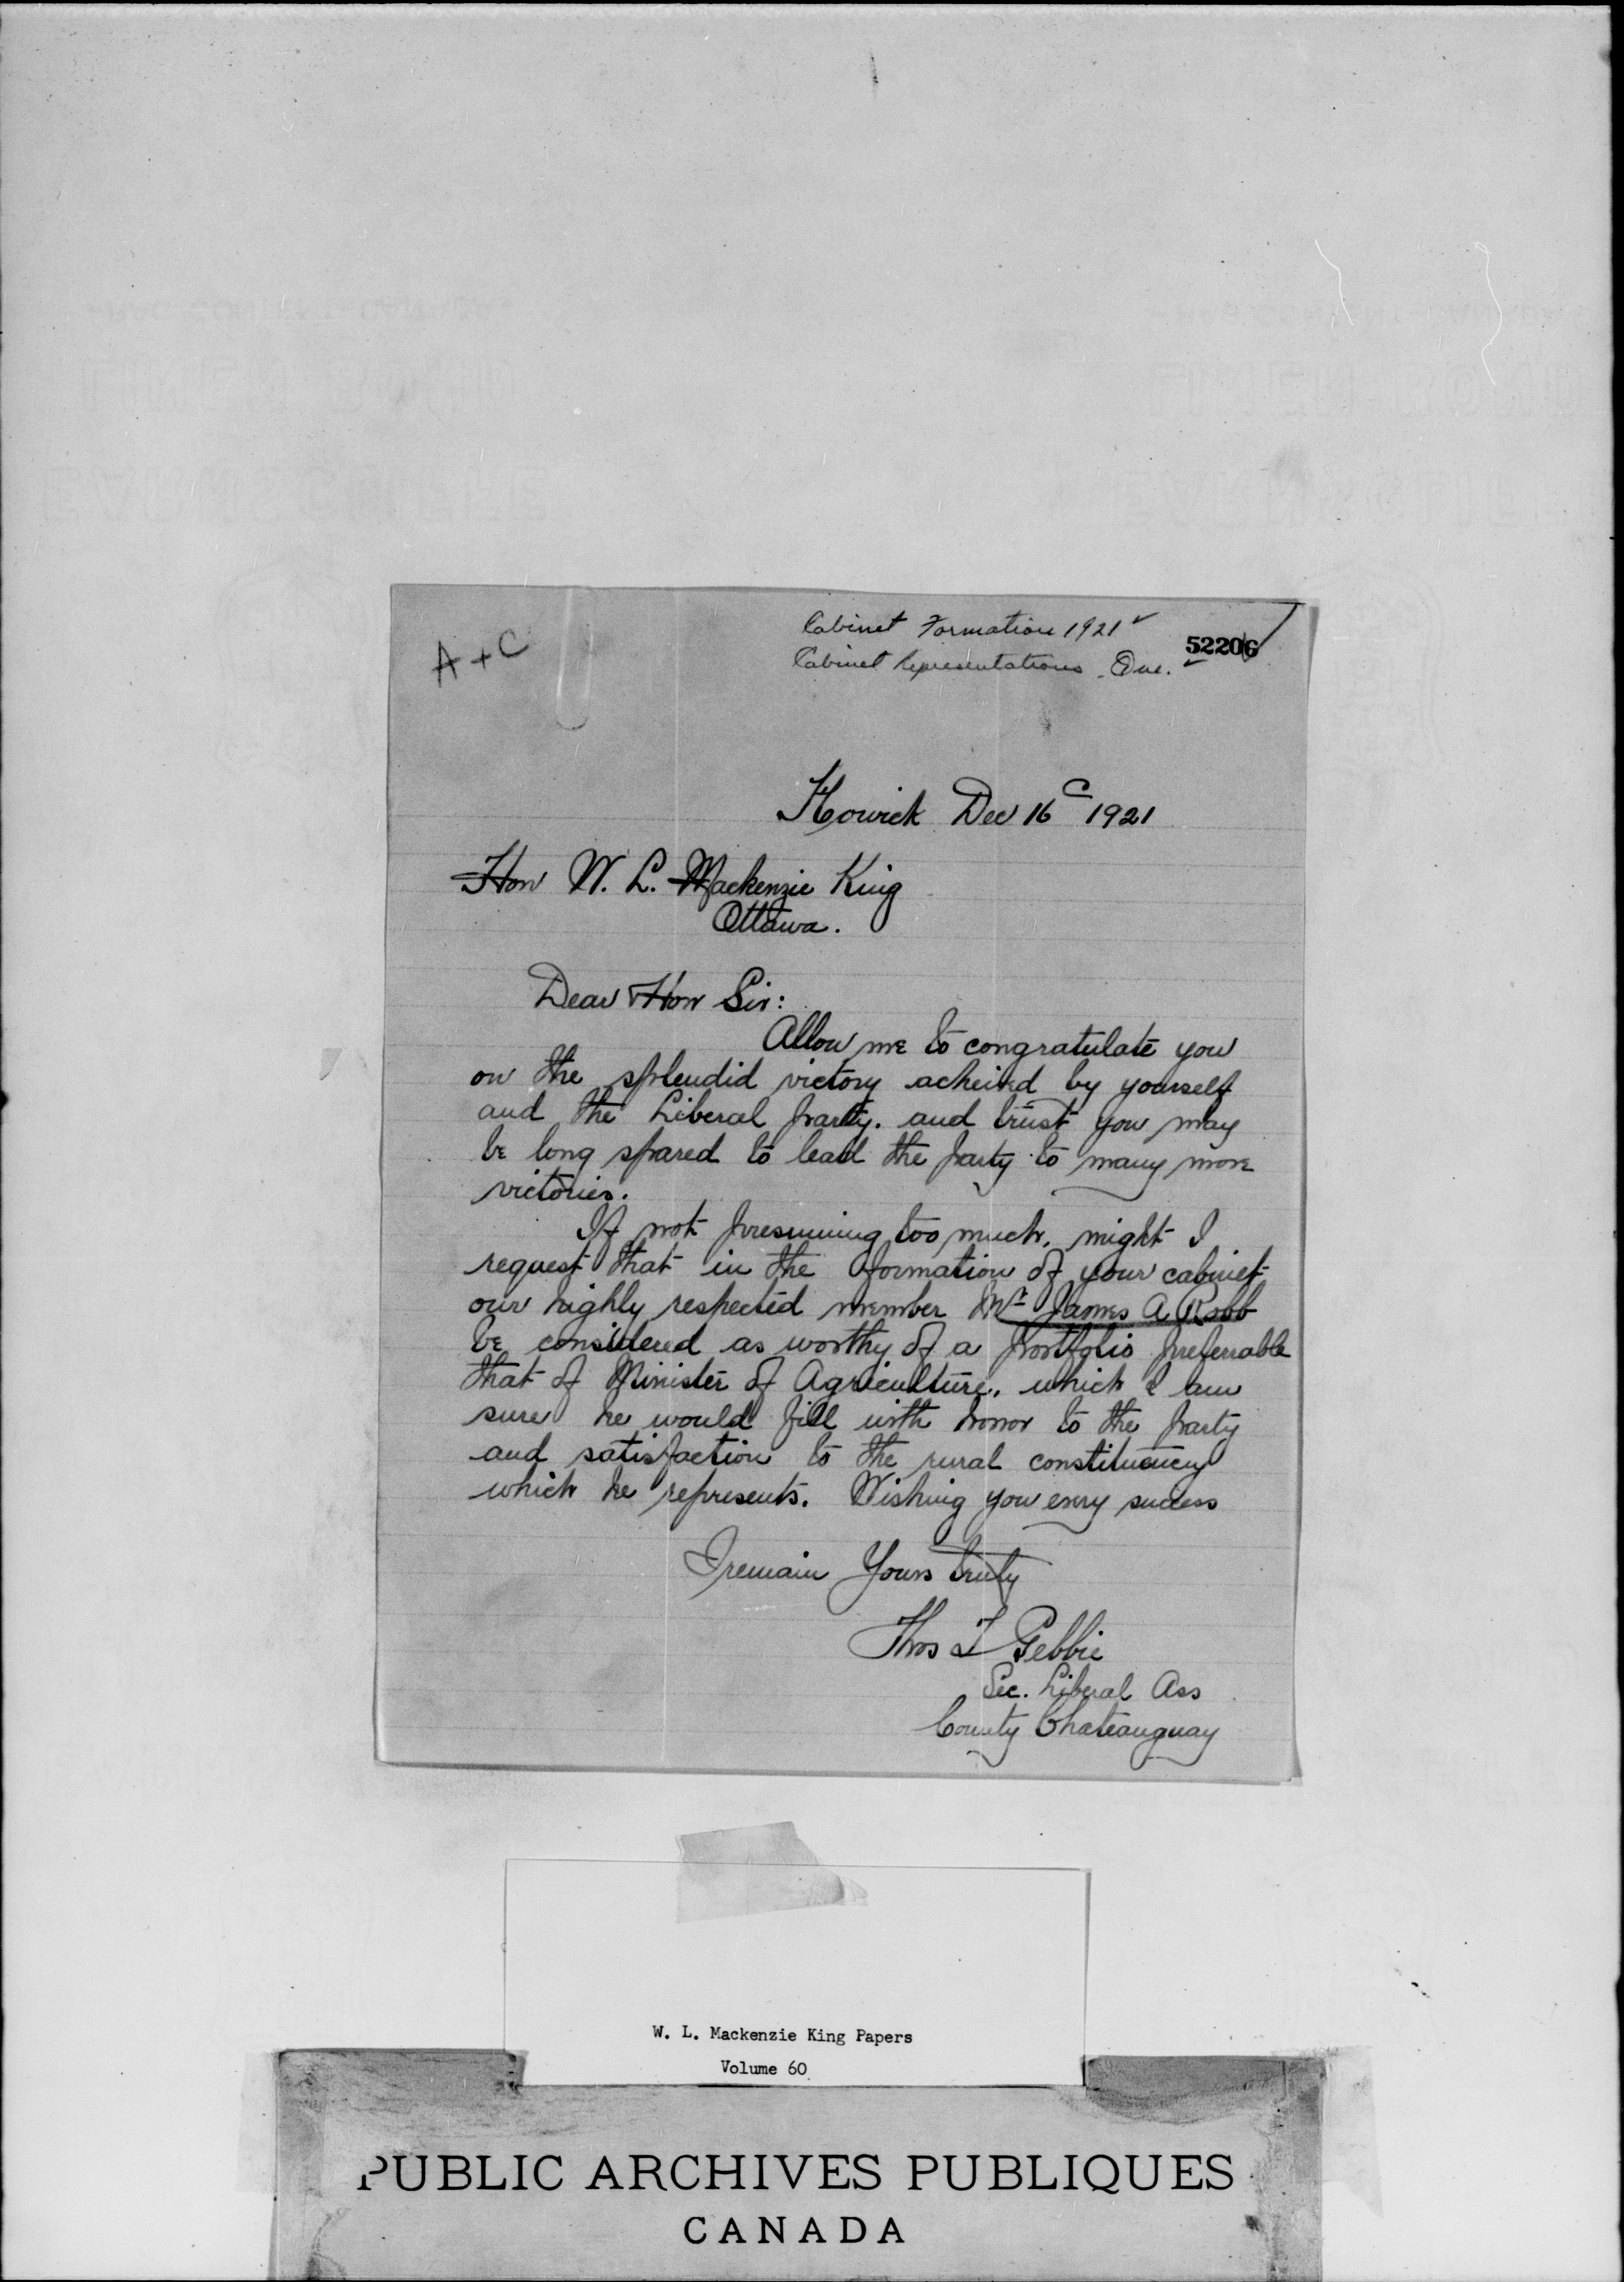 A + C
Cabinet Formation 1921
52206
Cabinet Representations - Que.
Howick Dec 16 1921
Hon W. L. Mackenzie King
Ottawa.
Dear Hon Sir:
Allow me to congratulate you
on the splendid victory acheived by yourself
and the Liberal party. and trust you may
be long spared to lead the party to many more
victories.
If not presuming too much, might I
request that in the formation of your cabinet
our highly respected member Mr James A Robb
be considered as worthy of a portfolio preferrable
that of Minister of Agriculture, which I am
sure he would fill with honor to the party
and satisfaction to the rural constituency
which he represents. Wishing you every success
I remain Yours truly
Thos T Gebbie
Sec. Liberal Ass
County Chateauguay
W. L. Mackenzie King Papers
Volume 60
PUBLIC ARCHIVES PUBLIQUES
CANADA